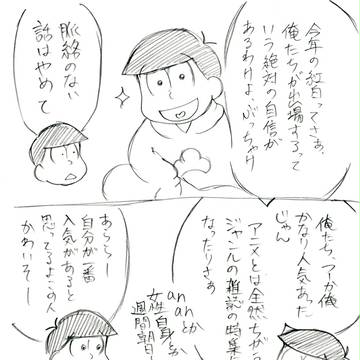 今年の紅白ってさぁ、
俺たちが出場するって
いう絶対の自信が
あるわけよ、ぶっちゃけ
脈絡のない
話はやめて
俺たち、アニメ
かなり人気あった
じゃん
アニメとは全然ちが
ジャンルの雑誌の特集
なったりさぁ
ananとか
女性自身とか
週間朝日
あららー
自分が一番
人気があると
思ってるよこの人
かわいそー